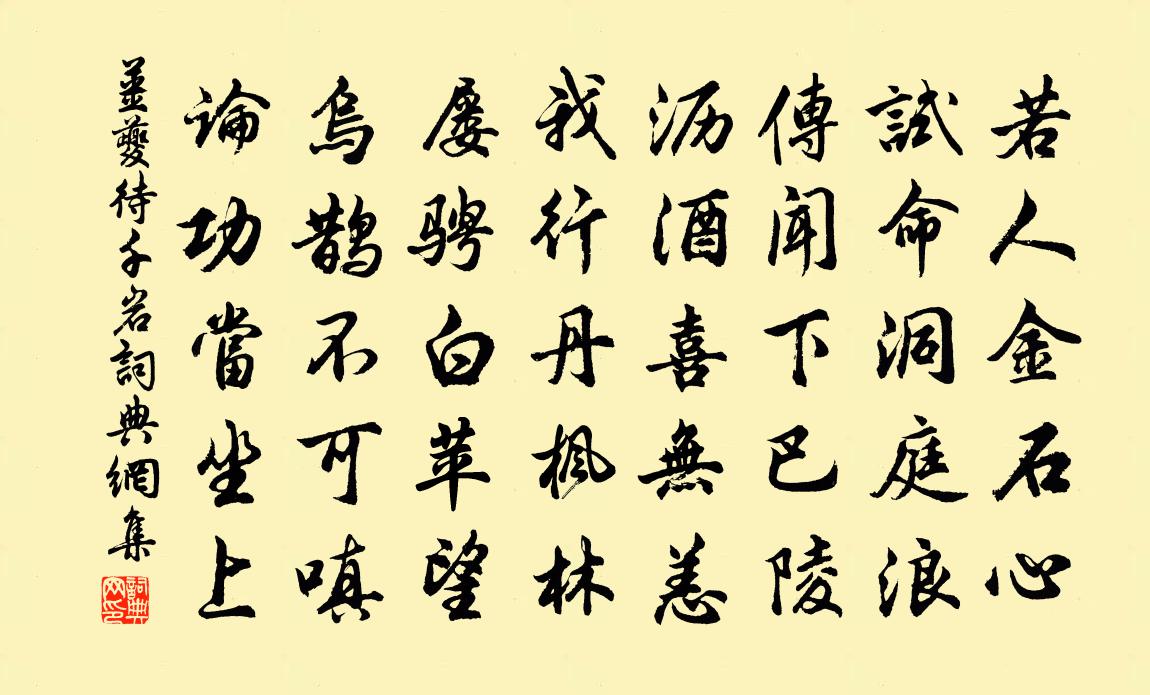 若人金石心
試命洞庭浪
傳聞下巴陵
沥酒喜無恙
我行丹楓林
屡骋白苹望
烏鵲不可嗔
論功當坐上
姜夔待千岩詞典網集
詞典網印